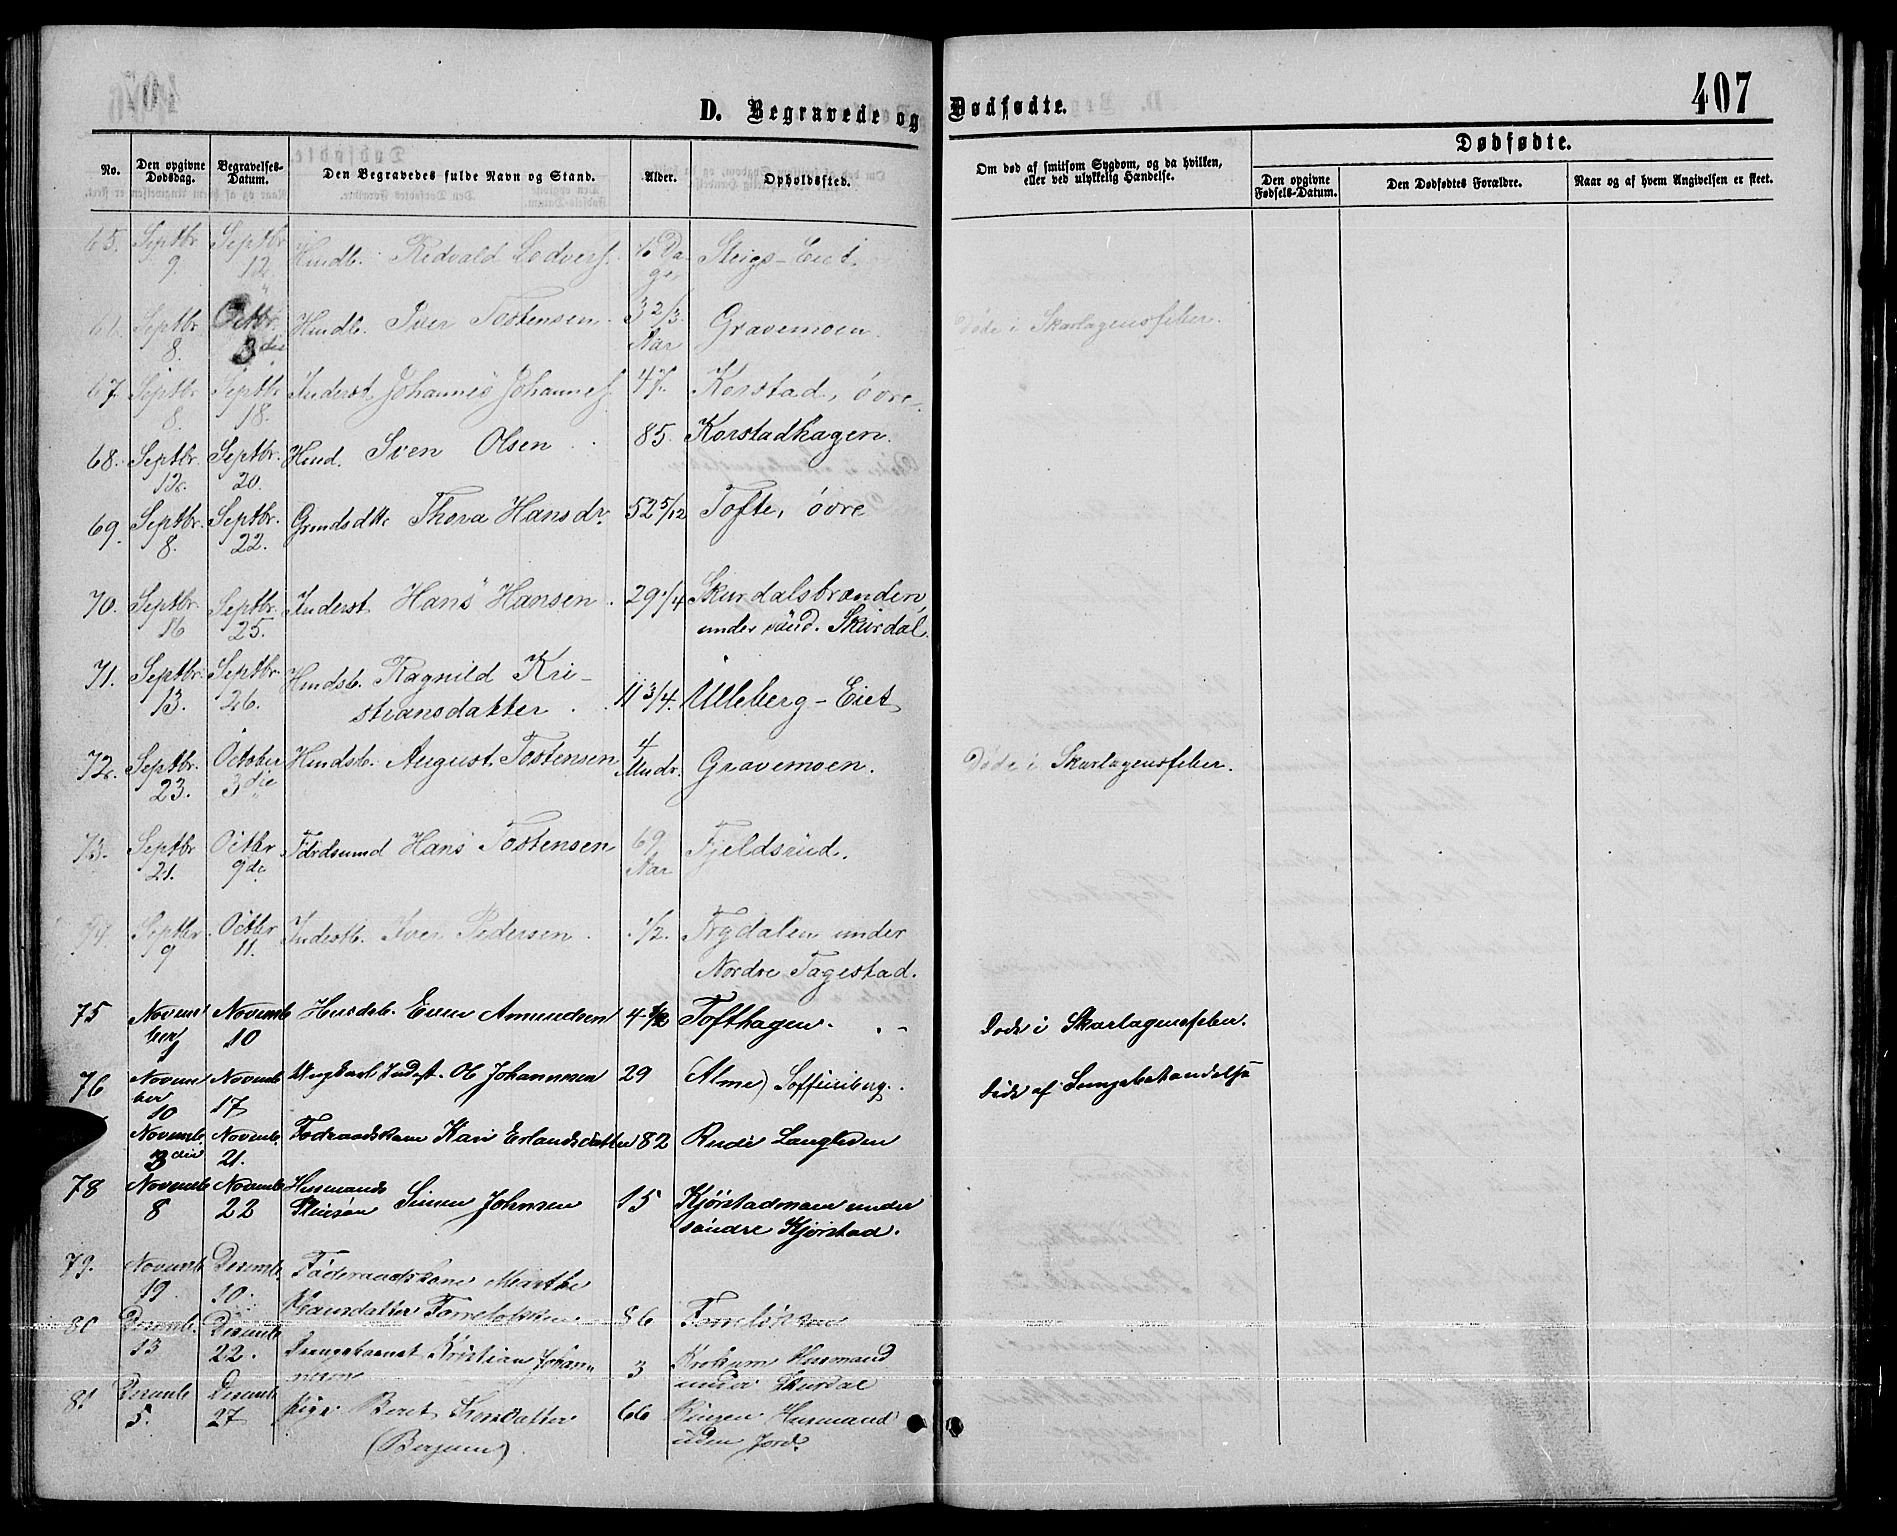 407
D. Begravede og Dødfødte.
No.
Den opgivne Dødsdag.
Begravelses-Datum.
Den Begravedes fulde Navn og Stand.
Alder.
Opholdssted.
Om død af smitsom Sygdom, og da hvilken, eller ved ulykkelig Hændelse.
Dødfødte.
Den opgivne Fødsels-Datum.
Den Dødfødtes Forældre.
Naar og af hvem Angivelsen er skeet.
65. Septbr. 9. Septbr. 12. Husdb. Redvald Sedvers. Dager Steigs-Eiet.
Septbr. 8. Octbr. 3die Husdb. Iver Tostensen 3 2/3 Aar Gravemoen. Døde i Skarlagensfeber.
67. Septbr. 8. Septbr. 18. Inderst Johannes Johannes. 47. Korstad, øvre.
68. Septbr. 12. Septbr. 20. Husd. Sven Olsen 85. Korstadhagen.
69. Septbr. 8. Septbr. 22. Thora Hansdr. 52 5/12 Tofte, øvre
70. Septbr. 16 Septbr. 25. Inderst Hans Hansen. 29 1/4 Skurdalsbrænden,
under sønd. Skurdal.
71. Septbr. 13. Septbr. 26. Husdb. Ragnild Kri-
stiansdatter 11 3/4. Ulleberg-Eiet
72. Septbr. 23. October 3die Husdb. August Tostensen 4 Mndr. Gravemoen. Døde i Skarlagensfeber.
73. Septbr. 21. Octbr 9de Hans Tostensen 69 Aar Fjeldsrud.
74. Septbr 9 Octbr 11. Indestb. Iver Pedersen 1/2. Trydalen under
Nordre Fagestad.
75 November Novemb 10 Husdb. Even Amundsen Tofthagen. Døde i Skarlagensfeber.
76 November 10 Novemb 17 Ungkarl Indest. Ole Johannesen 29
Novemb. 3die Novemb. 21. Føderaadskone Kari Erlandsdatter 82 Rude
78 Novemb 8 Novemb 22 Husmands Simen Johnsen 15 Kjørstadmoen under
søndre Kjørstad.
79. Novemb 19. Desemb. 10. Føderaadskone Marthe
86
80 Desemb. 13 Desemb. 22. Drengebarnet Kristian Johan-
nesen 3 Husmand
under Skurdal
81 Desemb 5. Desemb. 27 Pige Beret 66 Husmand
uden Jord.